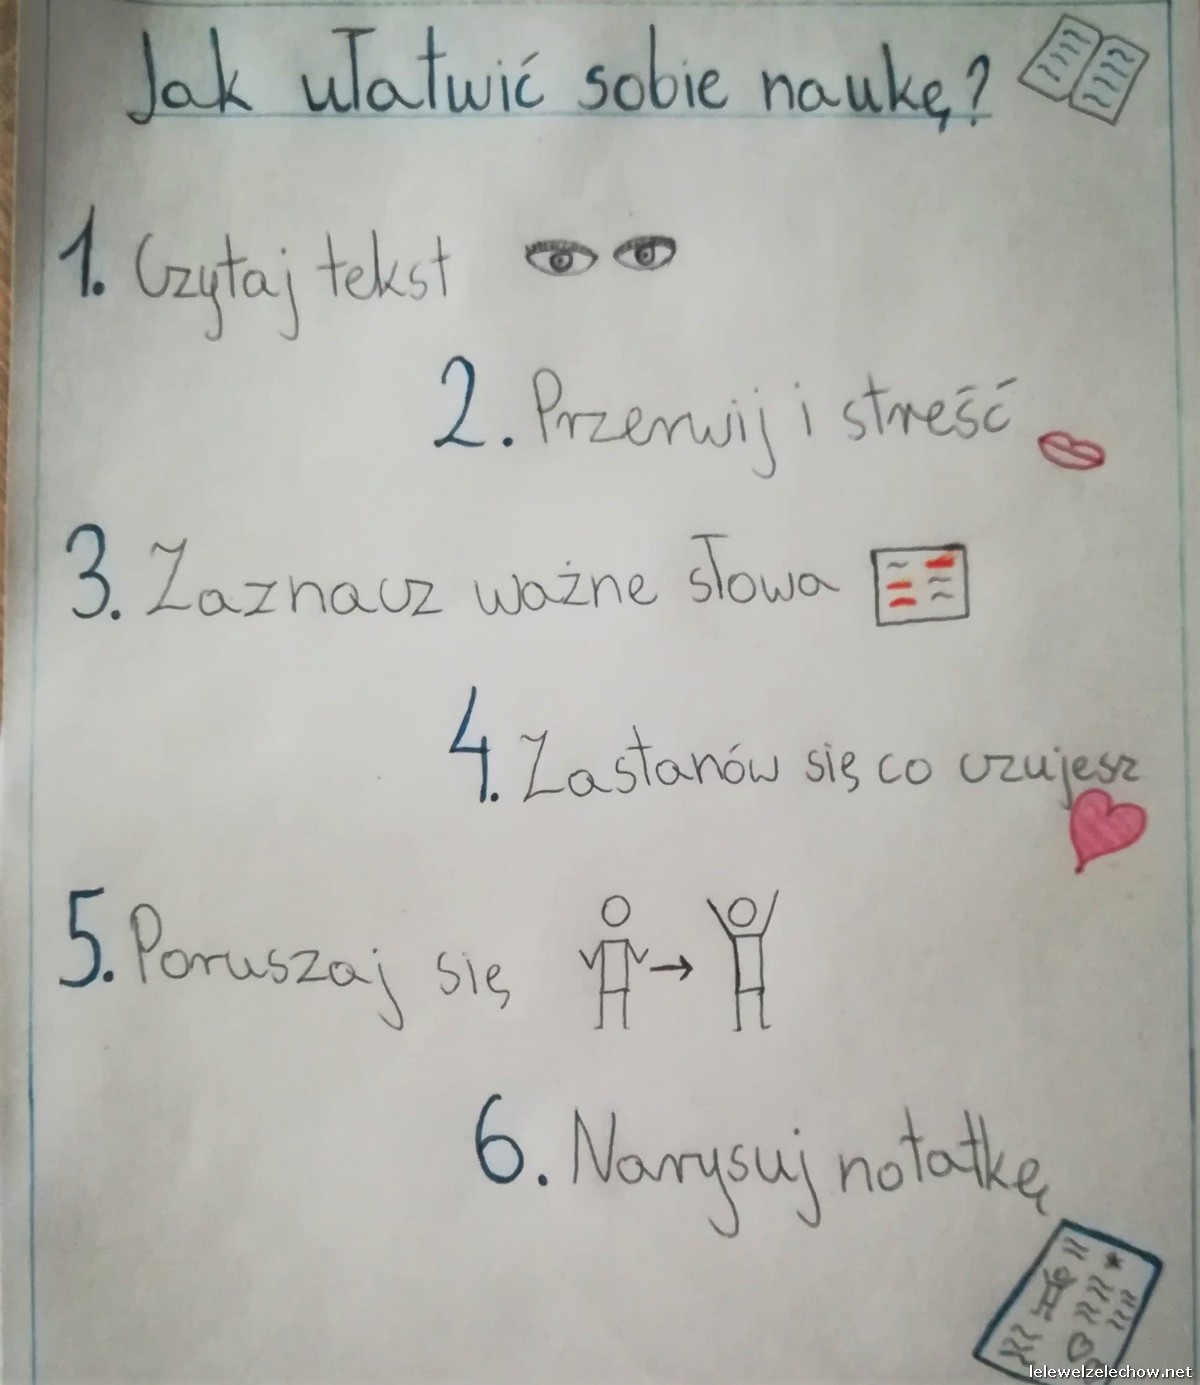 Jak ułatwić sobie naukę?
1. Czytaj tekst
2. Przerwij i streść
3. Zaznacz ważne słowa
4. Zastanów się co czujesz
5. Poruszaj się
6. Narysuj notatkę
lelewelzelechow.net